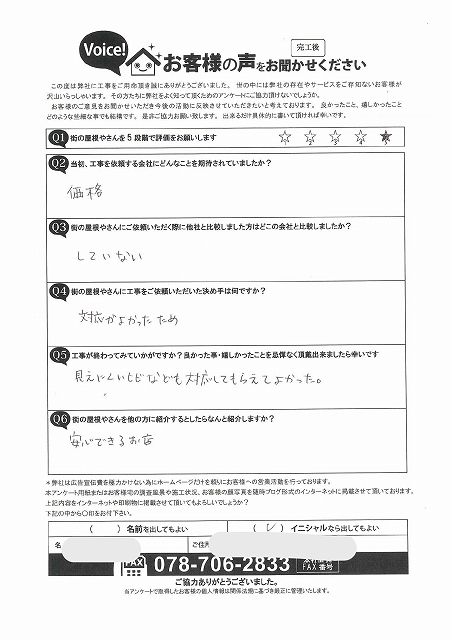 Voice!
お客様の声をお聞かせください
完工後
この度は弊社に工事をご用命頂き誠にありがとうございました。 世の中には弊社の存在やサービスをご存知ないお客様が
沢山いらっしゃいます。 その方たちに弊社をよく知って頂くためのアンケートにご協力頂けないでしょうか。
お客様のご意見をお聞かせいただき今後の活動に反映させていただきたいと考えております。 良かったこと、嬉しかったこと
どのような些細な事でも結構です。 是非ご協力お願い致します。 出来るだけ具体的に書いて頂ければ幸いです。
Q1 街の屋根やさんを5段階で評価をお願いします
☆ ☆ ☆ ☆ ★
Q2 当初、工事を依頼する会社にどんなことを期待されていましたか?
価格
Q3 街の屋根やさんにご依頼いただく際に他社と比較しました方はどこの会社と比較しましたか?
していない
Q4 街の屋根やさんに工事をご依頼いただいた決め手は何ですか?
対応がよかったため
Q5 工事が終わってみていかがですか?良かった事・嬉しかったことを忌憚なく頂戴出来ましたら幸いです
見えにくいヒビなども対応してもらえてよかった。
Q6 街の屋根やさんを他の方に紹介するとしたらなんと紹介しますか?
安心できるお店
*弊社は広告宣伝費を極力かけない為にホームページだけを頼りにお客様への営業活動を行っております。
本アンケート用紙またはお客様宅の調査風景や施工状況、お客様の顔写真を随時ブログ形式のインターネットに掲載させて頂いております。
上記内容をインターネットや印刷物に掲載させて頂いてもよろしいでしょうか?
下記の中から〇印をお付下さい。
( ) 名前を出してもよい
( レ ) イニシャルなら出してもよい
名
ご住所
FAX 078-706-2833
FAX番号
ご協力ありがとうございました。
当アンケートで取得したお客様の個人情報は関係法規に基づき厳正に管理いたします。